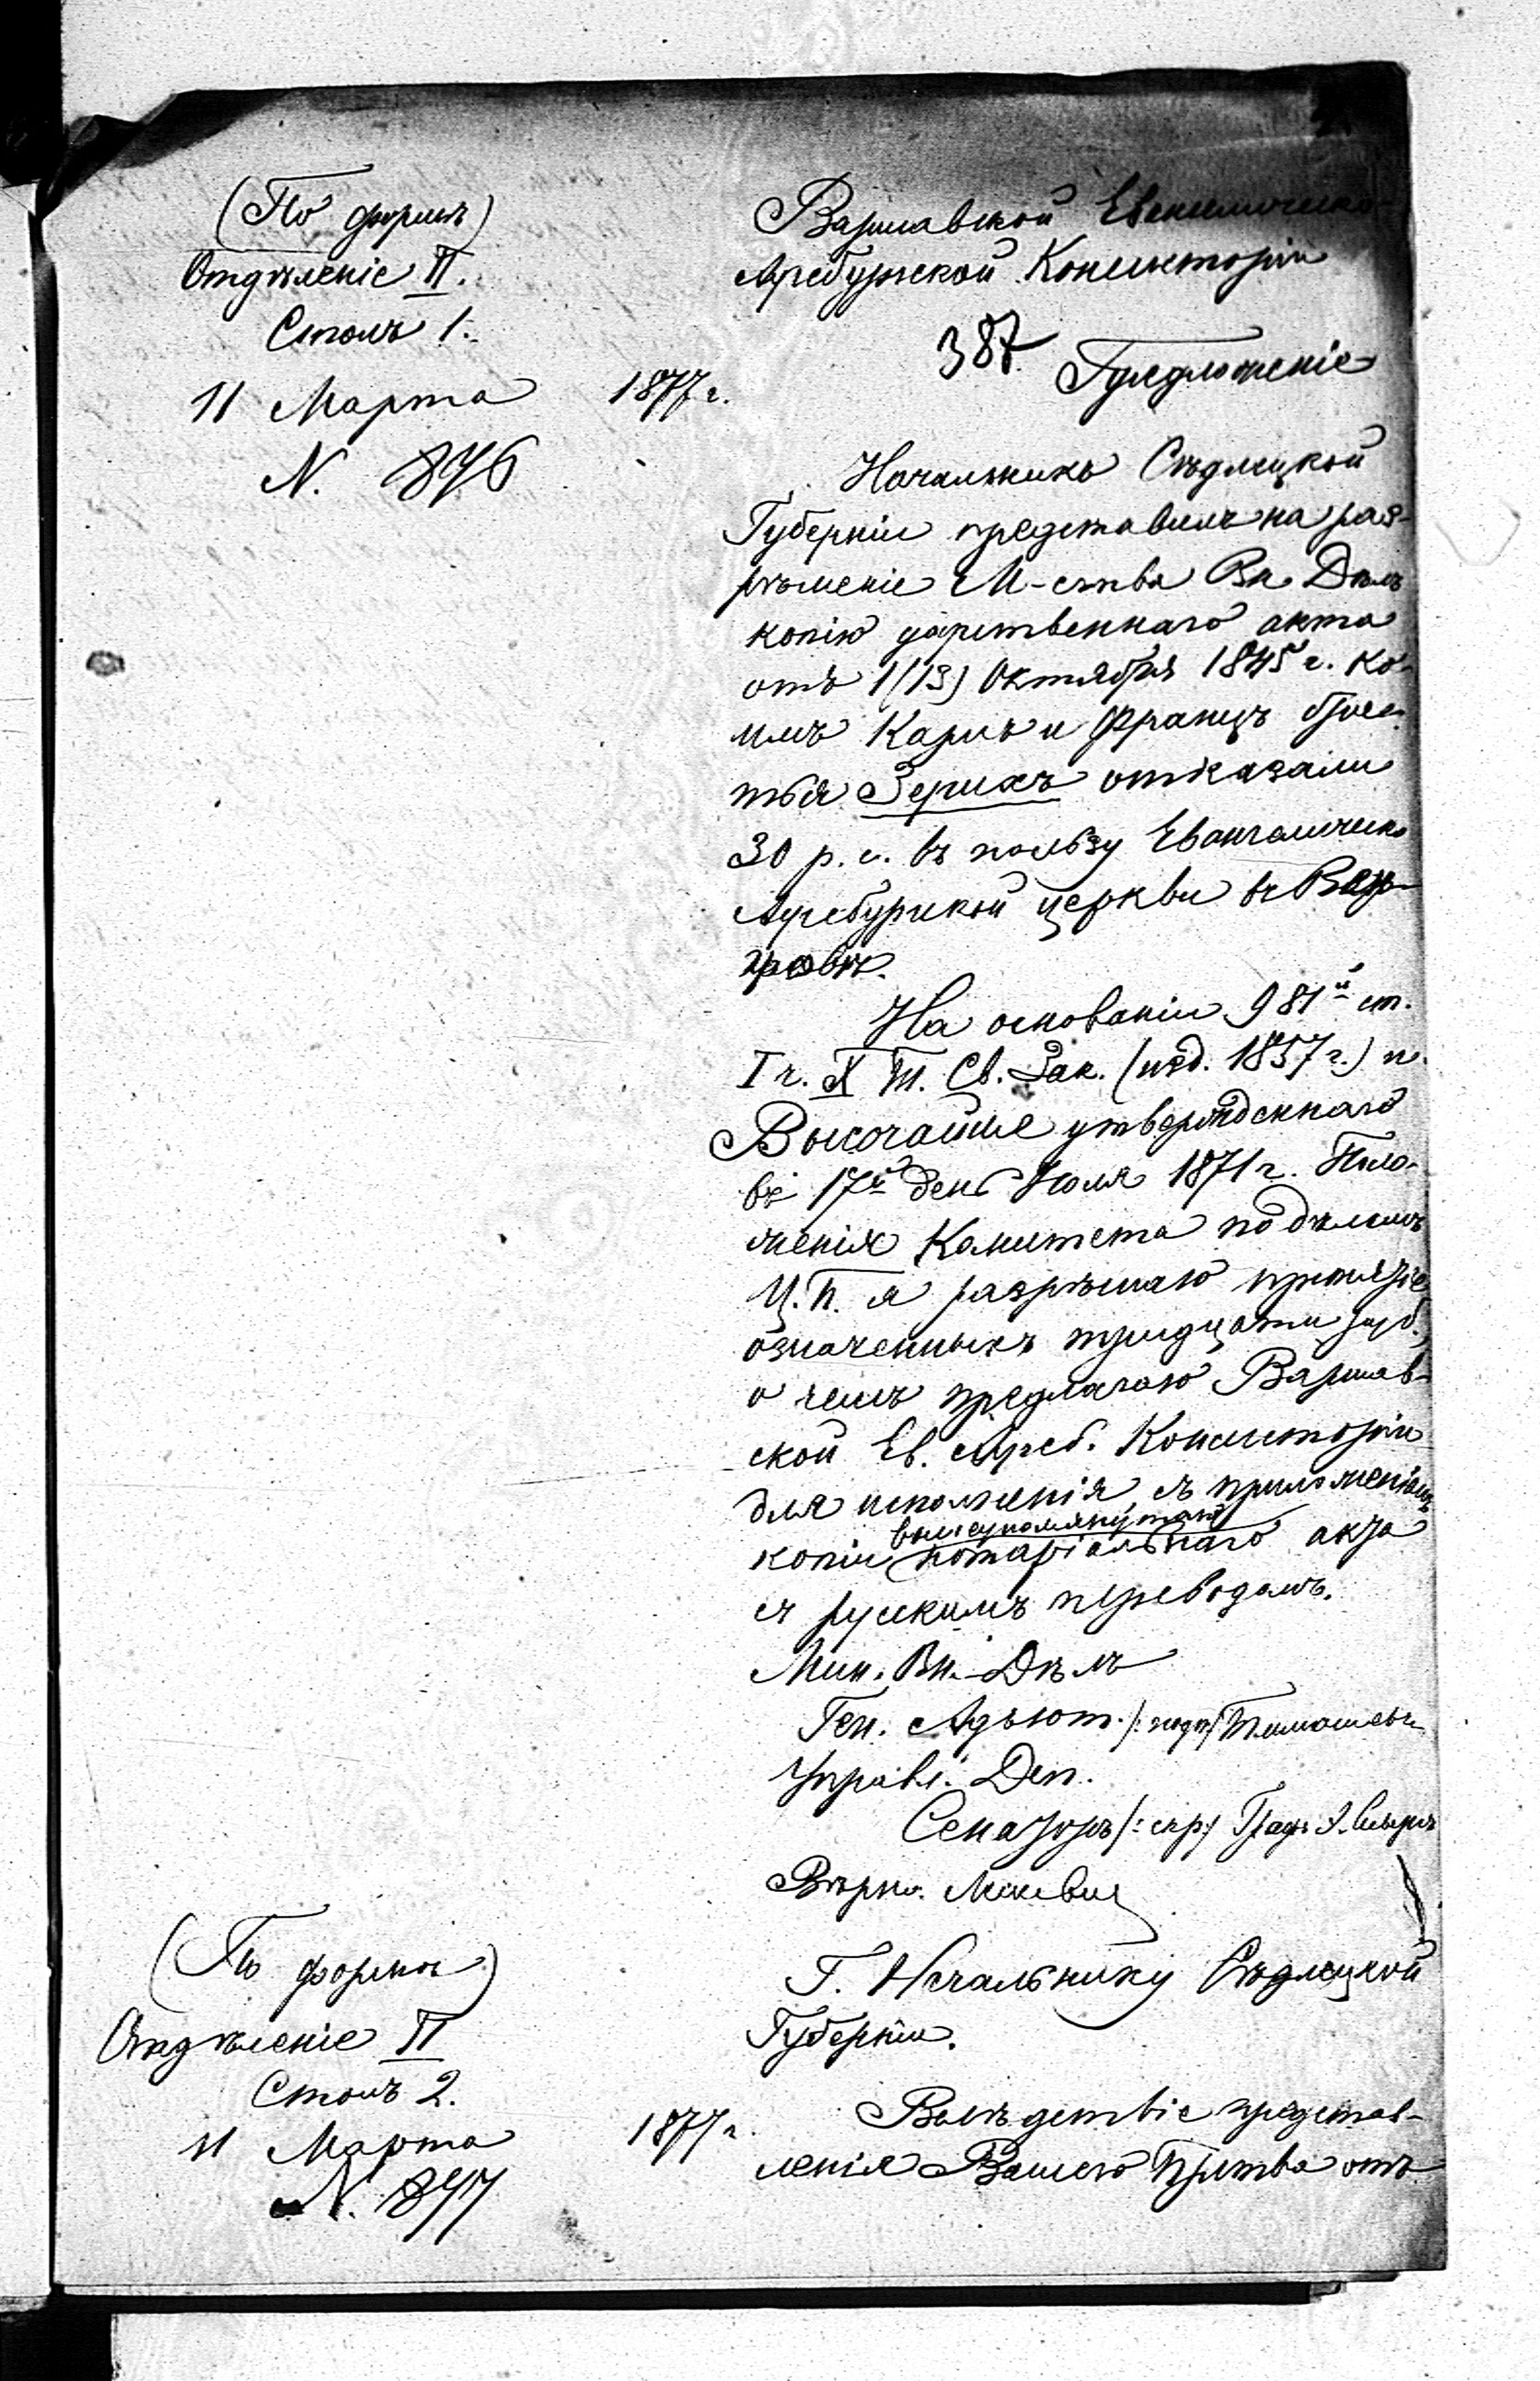 (По формѣ)
Отдѣленіе II.
Столъ 1.
11 Марта 1877 г.
N. 896
Варшавской Евангелическо-
Аугсбургской Консисторіи
387.
Предложеніе
Начальникъ Сѣдлецкой
Губерніи представилъ на раз-
рѣшеніе М-ства Вн. Дѣлъ
копію дарственнаго акта
отъ 1/13) Октября 1845 г. ко-
имъ Карлъ и Францъ бра-
тья Зерихъ отказали
30 р. с. въ пользу Евангелическо
Аугсбургской церкви въ Вен-
гровѣ.
На основаніи 981й ст.
I ч. X т. Св. Зак. (изд. 1857 г.) и
Высочайше утвержденнаго
въ 17й день Іюля 1871 г. Поло-
женія Комитета по дѣламъ
Ц. П. я разрѣшаю принятіе
означенныхъ тридцати руб.,
о чемъ предлагаю Варшав-
ской Ев. Аугсб. Консисторіи
для исполненія, съ приложеніемъ
вышеупомянутаго
копіи нотаріальнаго акта
съ русскимъ переводомъ.
Мин. Вн. Дѣлъ
Ген. Адъют. /: подп/ Тимашевъ
Управл. Деп.
Сенаторъ /: скр:/ Графъ Э. Сиверсъ
Вѣрно.
(По формѣ)
Отдѣленіе II
Столъ 2.
11 Марта 1877 г.
N. 897
Г. Начальнику Сѣдлецкой
Губерніи.
Вслѣдствіе представ-
ленія Вашего Пр-ства отъ